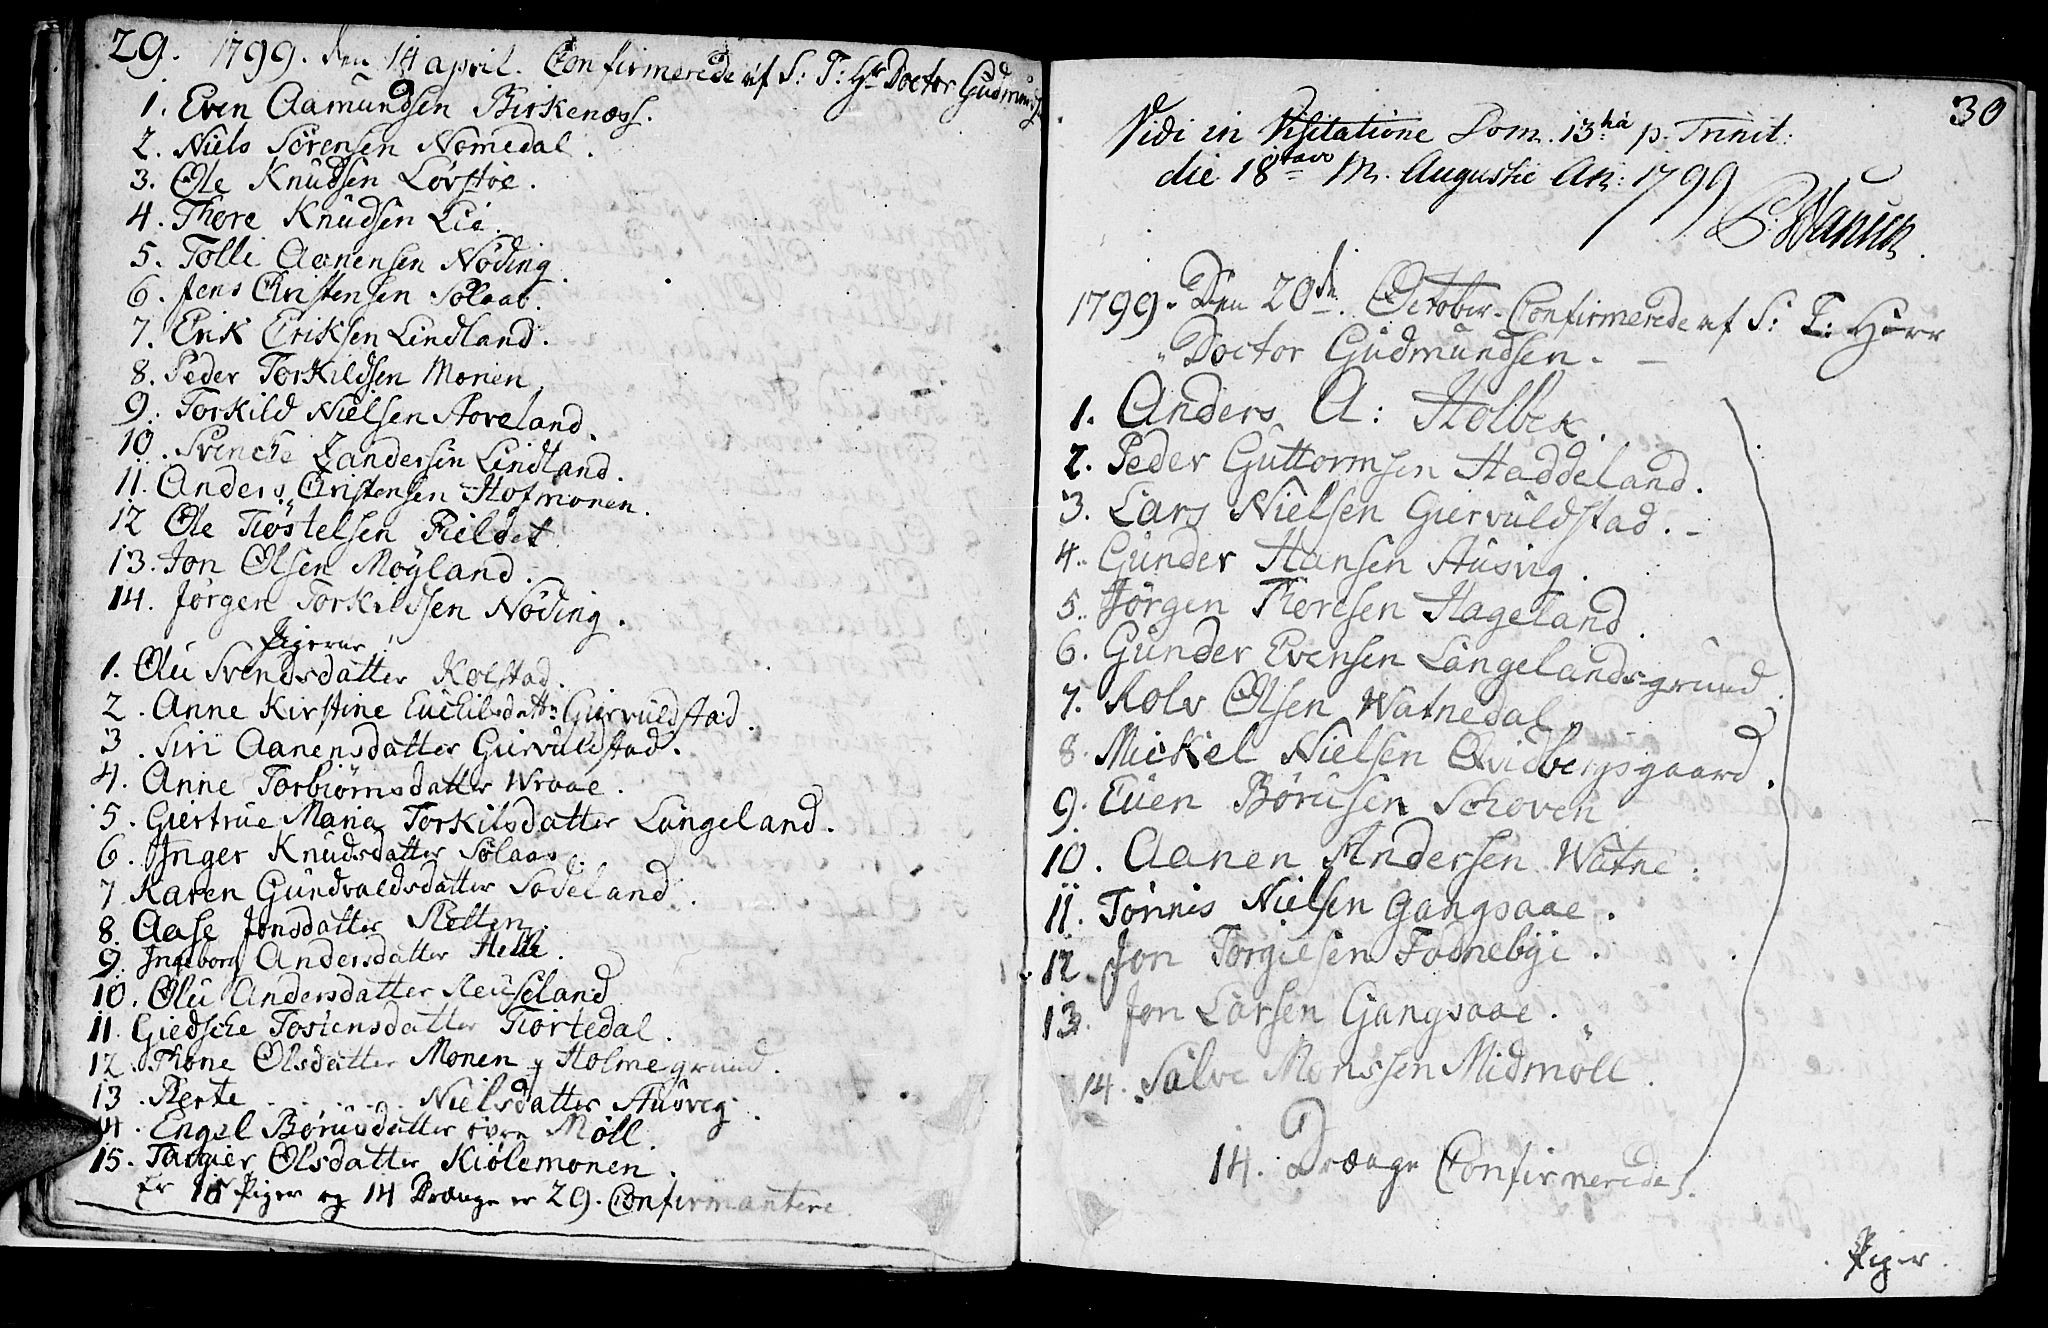 29. 1799. den 14 april. Confirmerede af S: T: Hr Doctor Gudmunds
1. Even Aamundsen Birkenæss.
2. Niels Sörensen Nomedal.
3. Ole Knudsen Lövstöe.
4. Thore Knudsen Lie.
5. Tolli Aanensen Nöding
6. Jens Christensen Sölaas.
7. Erik Eriksen Lindland.
8. Peder Torkildsen Monen
9. Torkild Nielsen Hoveland.
10. Svenche Zandersen Lindland.
11. Anders Christensen Hofmonen.
12 Ole Tiöstelsen
13. Jon Olsen Möyland.
14. Jörgen Torkildsen Nöding.
Pigerne
1. Olu Svendsdatter Kolstad.
2. Anne Kirstine Giervuldstad.
3. Siri Aanensdatter Giervuldstad.
4. Anne Torbiörnsdatter Wraae.
5. Giertrue Maria Torkilsdatter Langeland.
6. Inger Knudsdatter Sölaas.
7 Karen Gundvaldsdatter Sodeland.
8. Aase Jonsdatter Retten.
9. Ingeborg Andersdatter Helle.
10. Olu Andersdatter Reuseland
11. Giedsche Tostensdatter Tiortedal.
12. Thone Olsdatter Monen Holmegrund.
13. Berte . . . . . Nielsdatter Husveg.
14. Engel Börusdatter övre Möll.
15. Targier Olsdatter Kiölemonen.
Er 15 Piger og 14 Drænge er 29. Confirmantere.
30
Vidi in Visitatione Dom. 13tia p. Trinit:
die 18tavo M. Augustie An: 1799
P. Hansen
1799. Den 20de. October. Confirmerede af S: T: Herr
Doctor Gudmundsen.
1. Anders A: Holbek.
2. Peder Guttormsen Haddeland.
3. Lars Nielsen Giervuldstad.
4. Gunder Hansen Husvig.
5. Jörgen Thoresen Hageland.
6. Gunder Evensen Langelandsgrund.
7. Rolv Olsen Watnedal.
8. Mickel Nielsen Qvidbergsgaard.
9. Euen Börusen Schoven
10. Aanen Andersen Watne.
11. Tönnis Nielsen Gangsaae.
12. Jon Torgielsen Fodnebye.
13. Jon Larsen Gangsaae.
14. Salve Monssen Midmöll.
14. Drænge Confirmeredes.
Piger